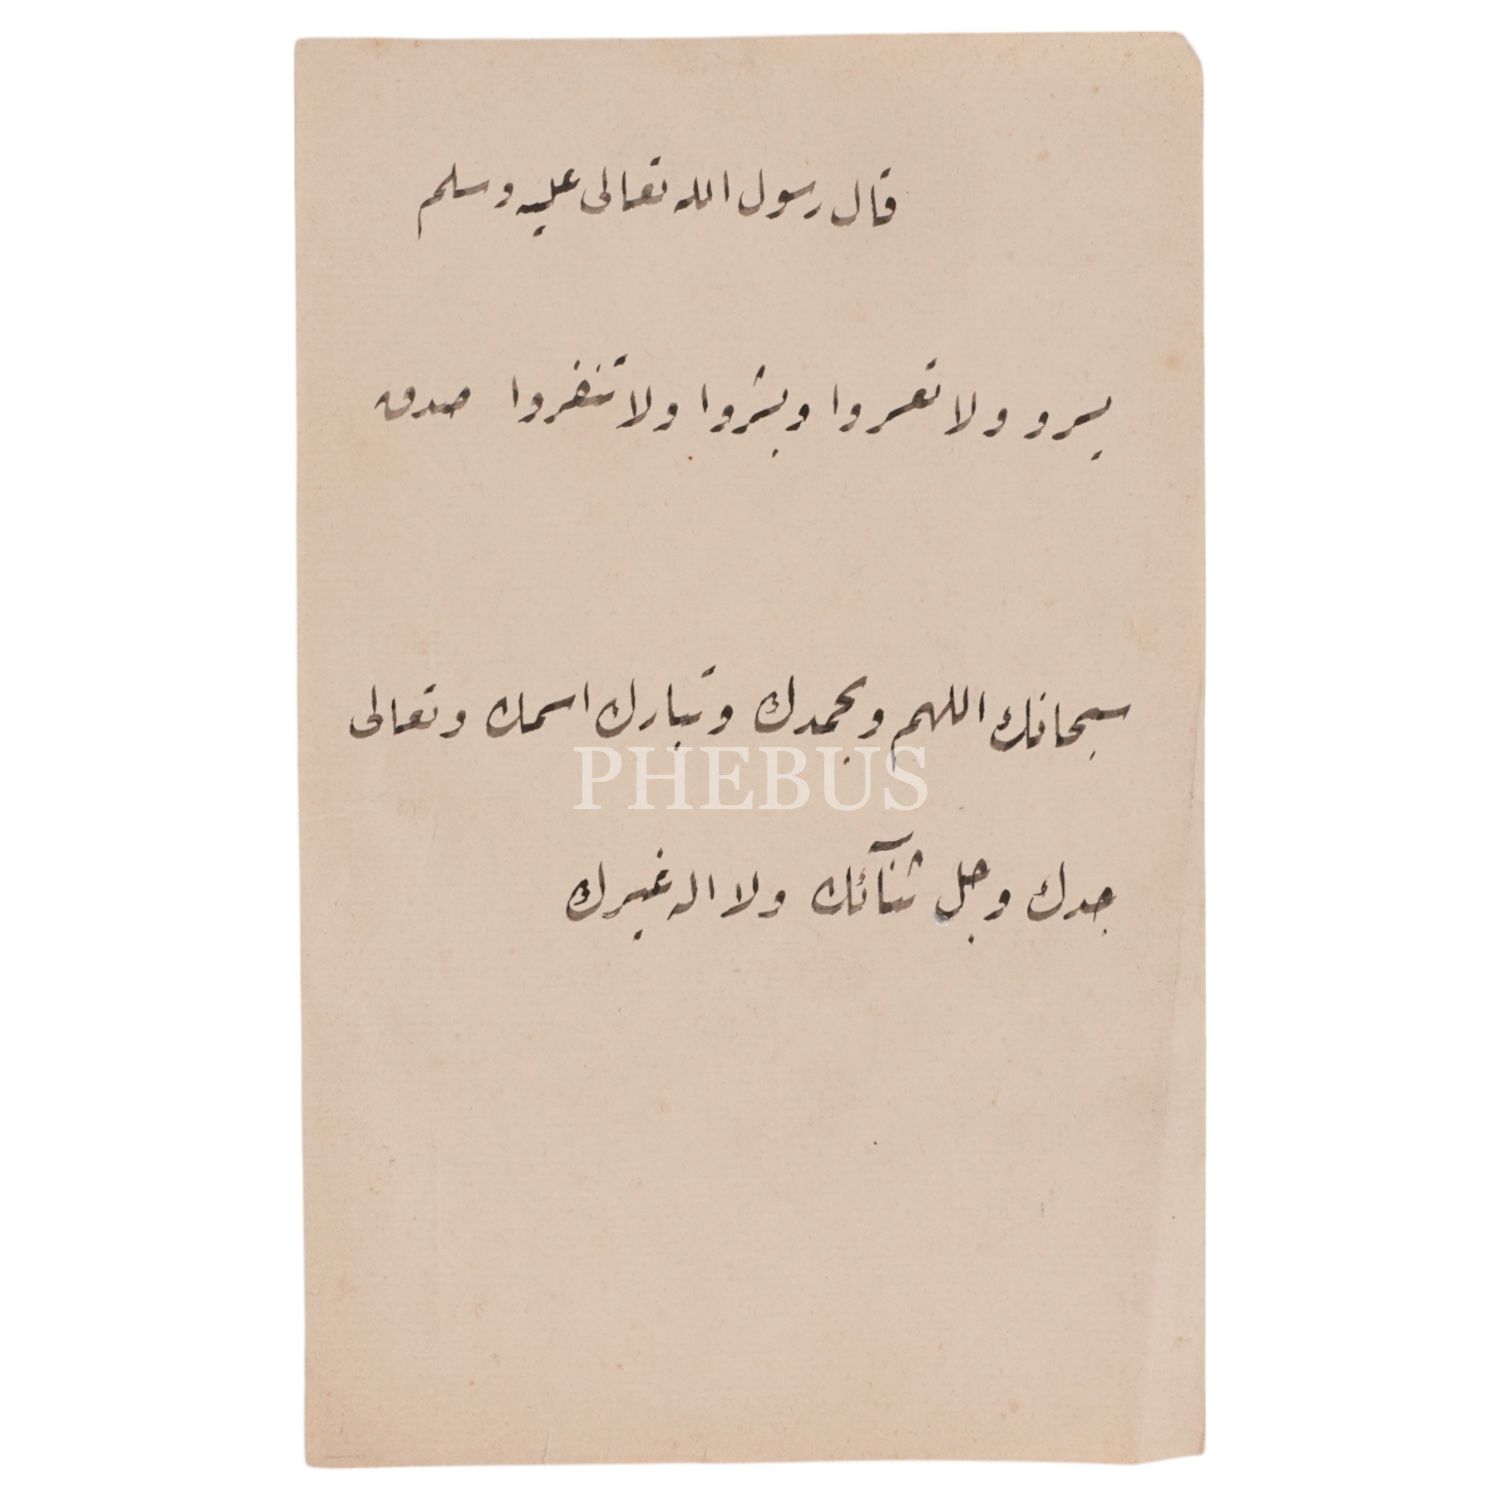 قال رسول الله تعالى عليه وسلم
يسرو ولا تعسروا وبشروا ولا تنفروا صدق
سبحانك اللهم وبحمدك وتبارك اسمك وتعالى
PHEBUS
جدك وجل ثنآئك ولا اله غيرك